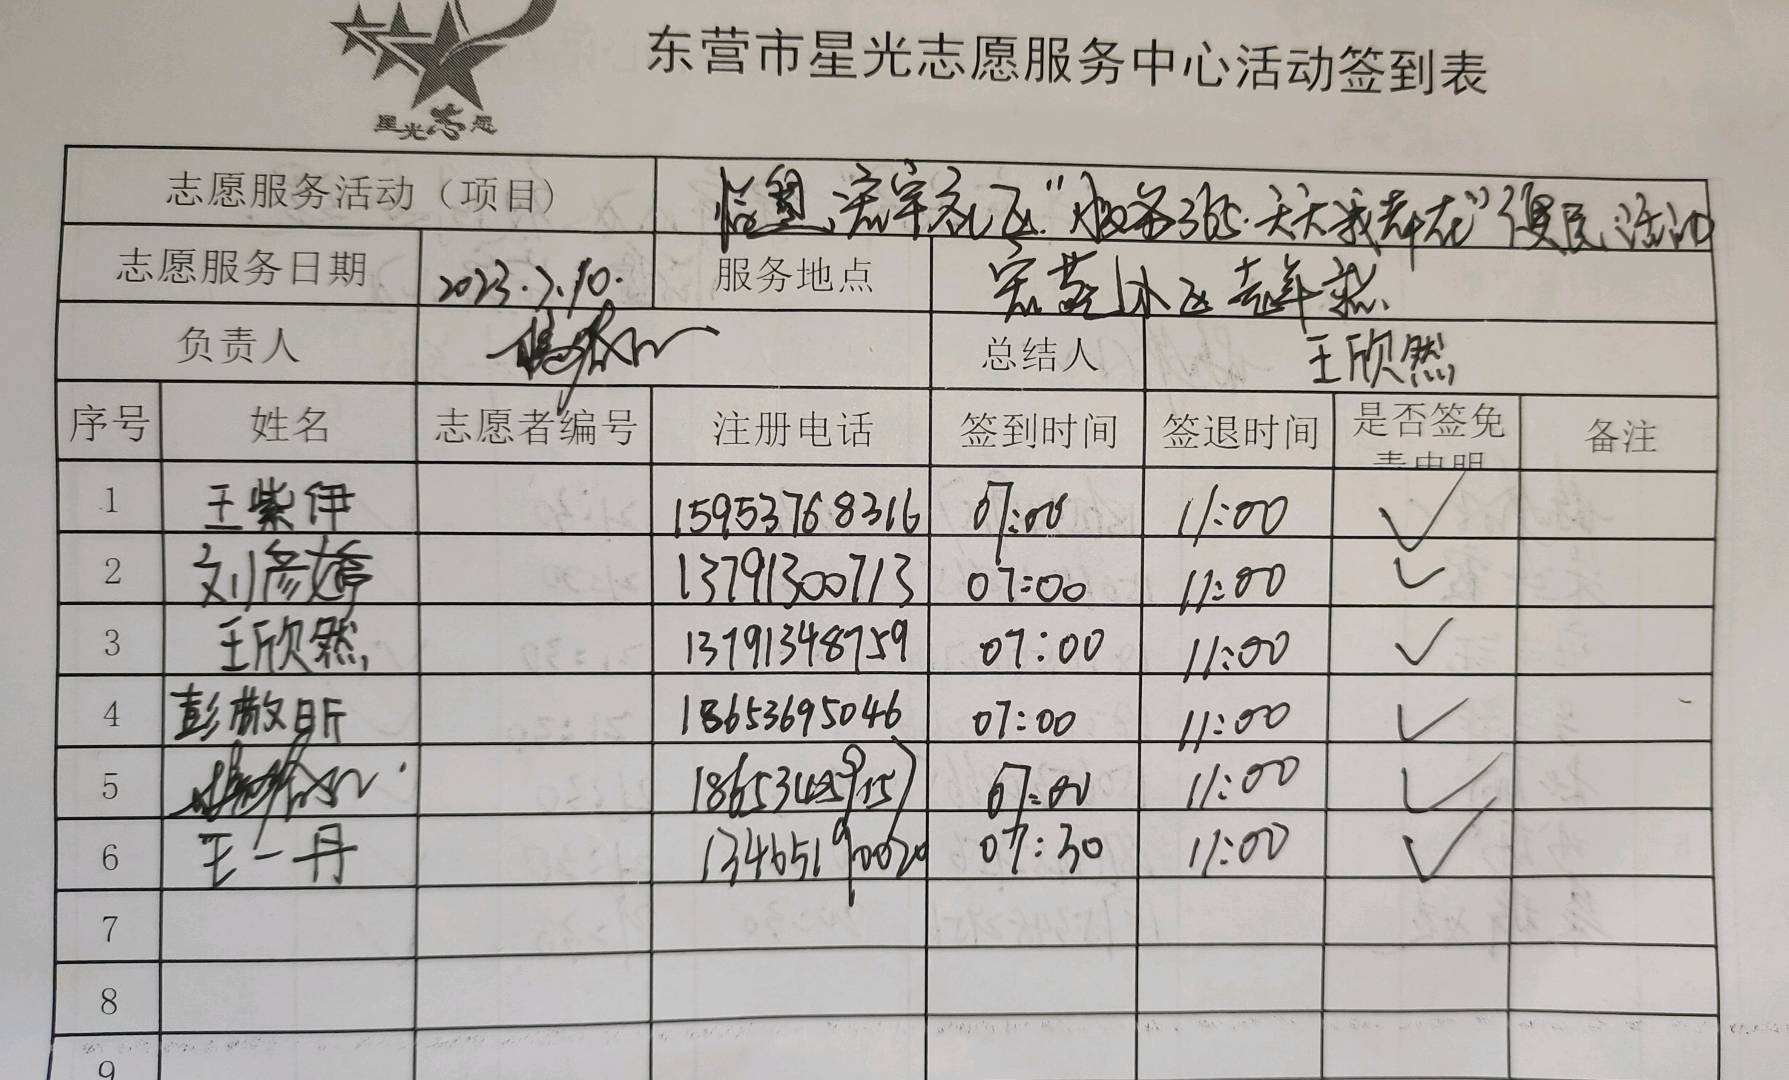 星光志愿
东营市星光志愿服务中心活动签到表
志愿服务活动（项目） 社区"服务365·天天我都在"便民活动
志愿服务日期 2023.7.10. 服务地点
负责人 总结人 王欣然
序号 姓名 志愿者编号 注册电话 签到时间 签退时间 是否签免责申明 备注
1 王紫伊 15953768316 07:00 11:00 ✓
2 刘彦婷 13791300713 07:00 11:00 ✓
3 王欣然 13791348759 07:00 11:00 ✓
4 彭散昕 18653695046 07:00 11:00 ✓
5 07:00 11:00 ✓
6 王一丹 13465190020 07:30 11:00 ✓
7
8
9